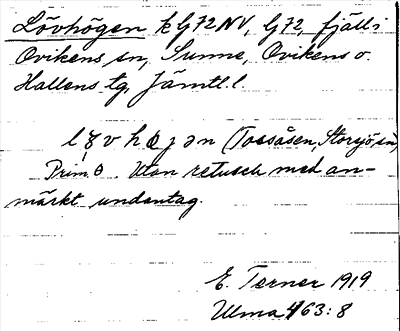 Lövhögen k G72NV, G72, fjäll i
Ovikens sn, Sunne, Ovikens o.
Hallens tg, Jämtl. l.
(Tossåsen, Storsjö sn)
Prim. ö. Utan retusch med an-
märkt undantag.
E. Terner 1919
Ulma 463:8